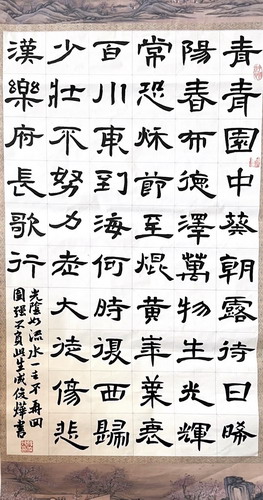 青青園中葵朝露待日晞
陽春布德澤萬物生光輝
常恐秋節至焜黄華葉衰
百川東到海何時復西歸
少壯不努力老大徒傷悲
漢樂府長歌行
光陰如流水一去不再回
图强不負此生成俊燁書